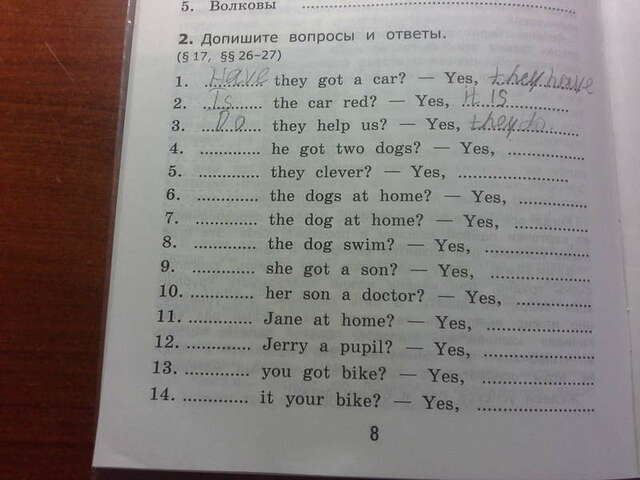 5. Волковы ..............
2. Допишите вопросы и ответы.
(§ 17, §§ 26–27)
1. Have they got a car? — Yes, they have
2. Is the car red? — Yes, it is
3. Do they help us? — Yes, they do.
4. ............ he got two dogs? — Yes, ...............
5. ............ they clever? — Yes, ...............
6. ............ the dogs at home? — Yes, ...............
7. ............ the dog at home? — Yes, ...............
8. ............ the dog swim? — Yes, ...............
9. ............ she got a son? — Yes, ...............
10. ............ her son a doctor? — Yes, ...............
11. ............ Jane at home? — Yes, ...............
12. ............ Jerry a pupil? — Yes, ...............
13. ............ you got bike? — Yes, ...............
14. ............ it your bike? — Yes, ...............
8